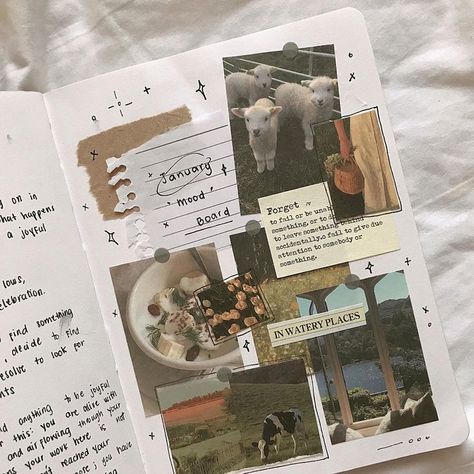 ng on in
what happens
a joyful
lows,
celebration.
find something
decide to find
resolve to look for
nts
and anything to be joyful
this: you are alive with
and airflowing through your
your work here is not
reached your
you have
January
"mood"
Board
Forget
to fail or be unabl
something, or to d
to leave something behind
accidentally.o fail to give due
attention to somebody or
something.
IN WATERY PLACES